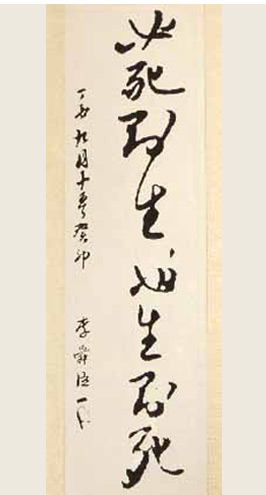 必死則生必生則死
丁酉九月十五日癸卯 李舜臣 一心